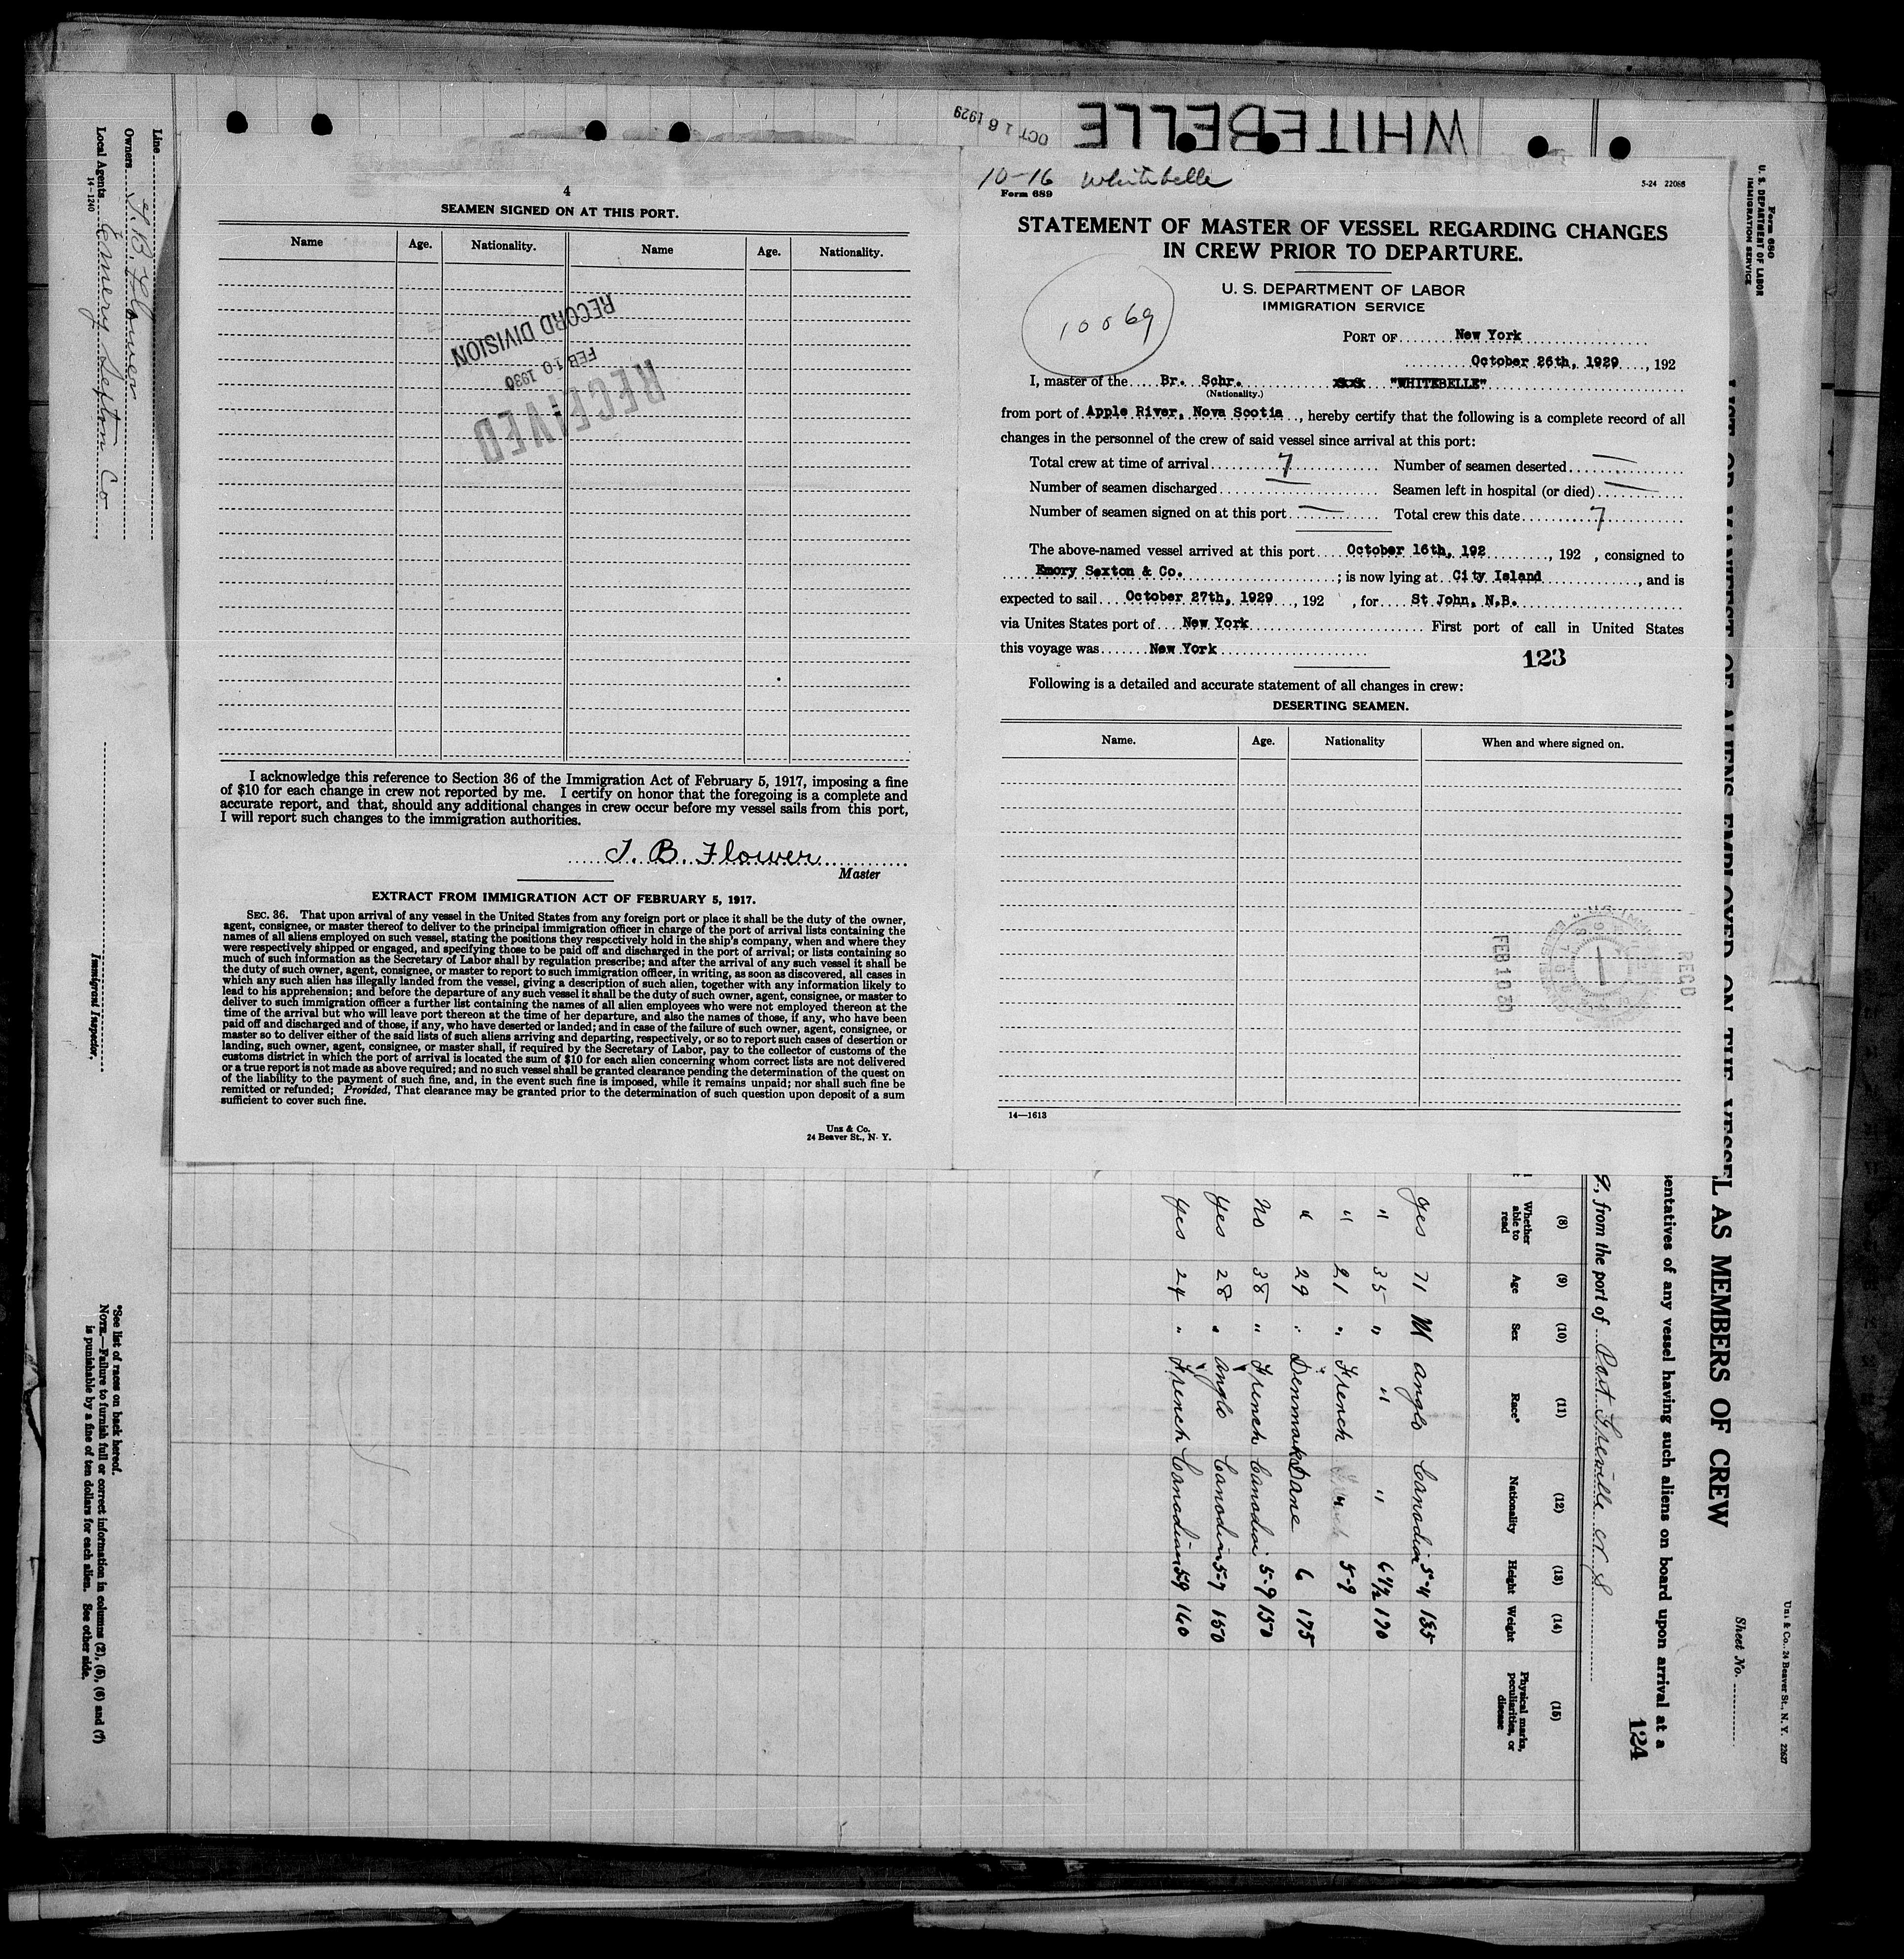 WHITEBELLE
OCT 16 1929
4
SEAMEN SIGNED ON AT THIS PORT.
Name Age. Nationality. Name Age. Nationality.
RECORD DIVISION
FEB 10 1930
RECEIVED
I acknowledge this reference to Section 36 of the Immigration Act of February 5, 1917, imposing a fine
of $10 for each change in crew not reported by me. I certify on honor that the foregoing is a complete and
accurate report, and that, should any additional changes in crew occur before my vessel sails from this port,
I will report such changes to the immigration authorities.
J. B. Flower
Master
EXTRACT FROM IMMIGRATION ACT OF FEBRUARY 5, 1917.
SEC. 36. That upon arrival of any vessel in the United States from any foreign port or place it shall be the duty of the owner,
agent, consignee, or master thereof to deliver to the principal immigration officer in charge of the port of arrival lists containing the
names of all aliens employed on such vessel, stating the positions they respectively hold in the ship's company, when and where they
were respectively shipped or engaged, and specifying those to be paid off and discharged in the port of arrival; or lists containing so
much of such information as the Secretary of Labor shall by regulation prescribe; and after the arrival of any such vessel it shall be
the duty of such owner, agent, consignee, or master to report to such immigration officer, in writing, as soon as discovered, all cases in
which any such alien has illegally landed from the vessel, giving a description of such alien, together with any information likely to
lead to his apprehension; and before the departure of any such vessel it shall be the duty of such owner, agent, consignee, or master to
deliver to such immigration officer a further list containing the names of all alien employees who were not employed thereon at the
time of the arrival but who will leave port thereon at the time of her departure, and also the names of those, if any, who have been
paid off and discharged and of those, if any, who have deserted or landed; and in case of the failure of such owner, agent, consignee, or
master so to deliver either of the said lists of such aliens arriving and departing, respectively, or so to report such cases of desertion or
landing, such owner, agent, consignee, or master shall, if required by the Secretary of Labor, pay to the collector of customs of the
customs district in which the port of arrival is located the sum of $10 for each alien concerning whom correct lists are not delivered
or a true report is not made as above required; and no such vessel shall be granted clearance pending the determination of the quest on
of the liability to the payment of such fine, and, in the event such fine is imposed, while it remains unpaid; nor shall such fine be
remitted or refunded; Provided, That clearance may be granted prior to the determination of such question upon deposit of a sum
sufficient to cover such fine.
Unz & Co.
24 Beaver St., N. Y.
10-16 Whitebelle
Form 689
5-24 22088
STATEMENT OF MASTER OF VESSEL REGARDING CHANGES
IN CREW PRIOR TO DEPARTURE.
U. S. DEPARTMENT OF LABOR
IMMIGRATION SERVICE
10069
PORT OF New York
October 26th, 1929, 192
I, master of the Br. Schr. xxx "WHITEBELLE"
(Nationality.)
from port of Apple River, Nova Scotia, hereby certify that the following is a complete record of all
changes in the personnel of the crew of said vessel since arrival at this port:
Total crew at time of arrival 7 Number of seamen deserted —
Number of seamen discharged — Seamen left in hospital (or died) —
Number of seamen signed on at this port — Total crew this date 7
The above-named vessel arrived at this port October 16th, 192, 192 , consigned to
Emory Sexton & Co. ; is now lying at City Island, and is
expected to sail October 27th, 1929, 192 , for St John, N.B.
via Unites States port of New York First port of call in United States
this voyage was New York
123
Following is a detailed and accurate statement of all changes in crew:
DESERTING SEAMEN.
Name. Age. Nationality When and where signed on.
FEB 10 30
REC'D
14—1613
Line
Owners J. B. Flower
Local Agents Emery Sexton Co
14-1240
Immigrant Inspector.
*See list of races on back hereof.
NOTE.—Failure to furnish full or correct information in columns (2), (5), (6) and (7)
is punishable by a fine of ten dollars for each alien. See other side.
Form 680
U. S. DEPARTMENT OF LABOR
IMMIGRATION SERVICE
Unz & Co., 24 Beaver St., N. Y. 22627
Sheet No.
LIST OR MANIFEST OF ALIENS EMPLOYED ON THE VESSEL AS MEMBERS OF CREW
entatives of any vessel having such aliens on board upon arrival at a
9, from the port of Port Greville N S
124
(8) (9) (10) (11) (12) (13) (14) (15)
Whether able to read Age Sex Race* Nationality Height Weight Physical marks, peculiarities, or disease
yes 71 M Anglo Canadian 5-4 135
" 35 " " " 6½ 190
" 21 " French " 5-9
" 29 " Denmark Dane 6 175
no 38 " French Canadian 5-9 150
yes 28 " Anglo Canadian 5-7 150
yes 24 " French Canadian 59 160